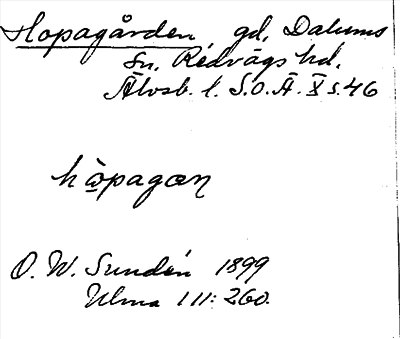 Hopagården, gd, Dalums
sn, Redvägs hd.
Älvsb. l. S.O.Ä. X s.46
hὼ̲pagœn
O. W. Sundén 1899
Ulma 111: 260.